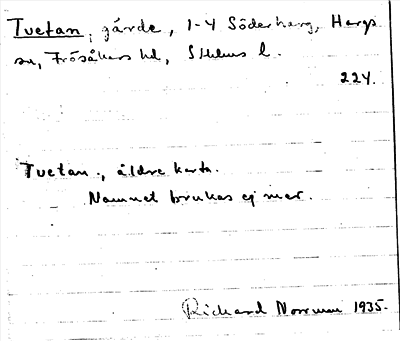 Tvetan, gärde, 1-4 Söderharg, Hargs
sn, Frösåkers hd, Sthlms l.
224.
Tvetan., äldre karta.
Namnet brukas ej mer.
Richard Norrman 1935.